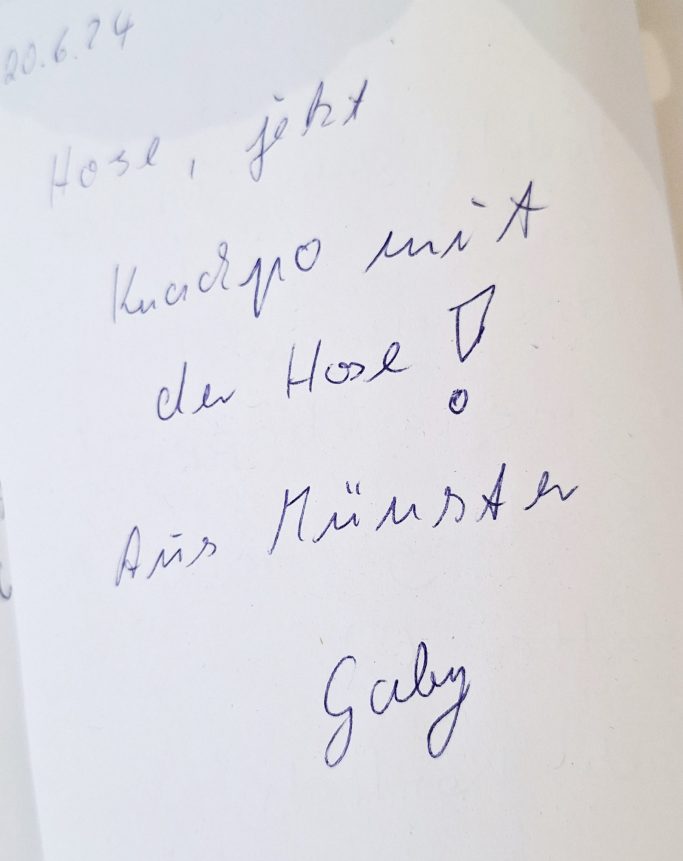 20.6.24
Hose, jetzt
Knackpo mit
der Hose!
Aus Münster
Gaby